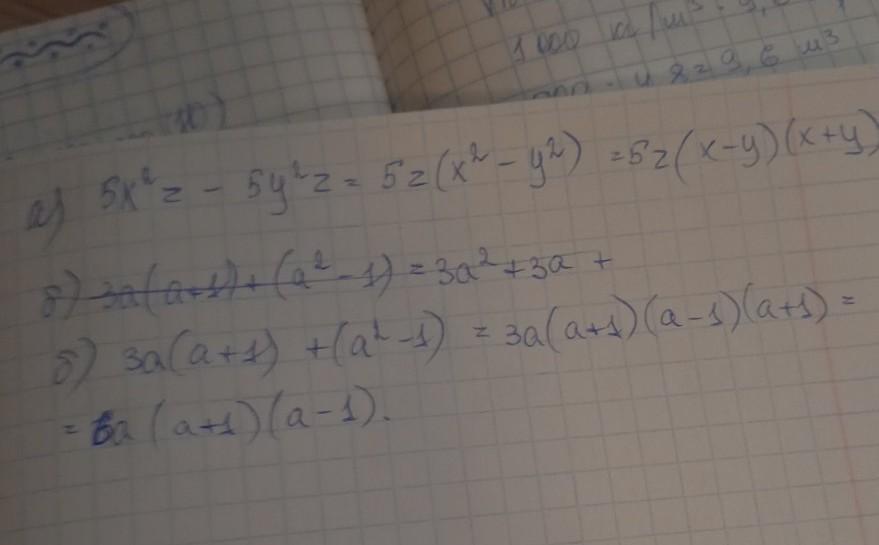 1 000
= 9,6 м³
а) 5x²z - 5y²z = 5z(x² - y²) = 5z(x-y)(x+y)
б) 3a(a+1)+(a²-1) = 3a²+3a +
б) 3a(a+1) +(a²-1) = 3a(a+1)(a-1)(a+1) =
= 6a (a+1)(a-1).